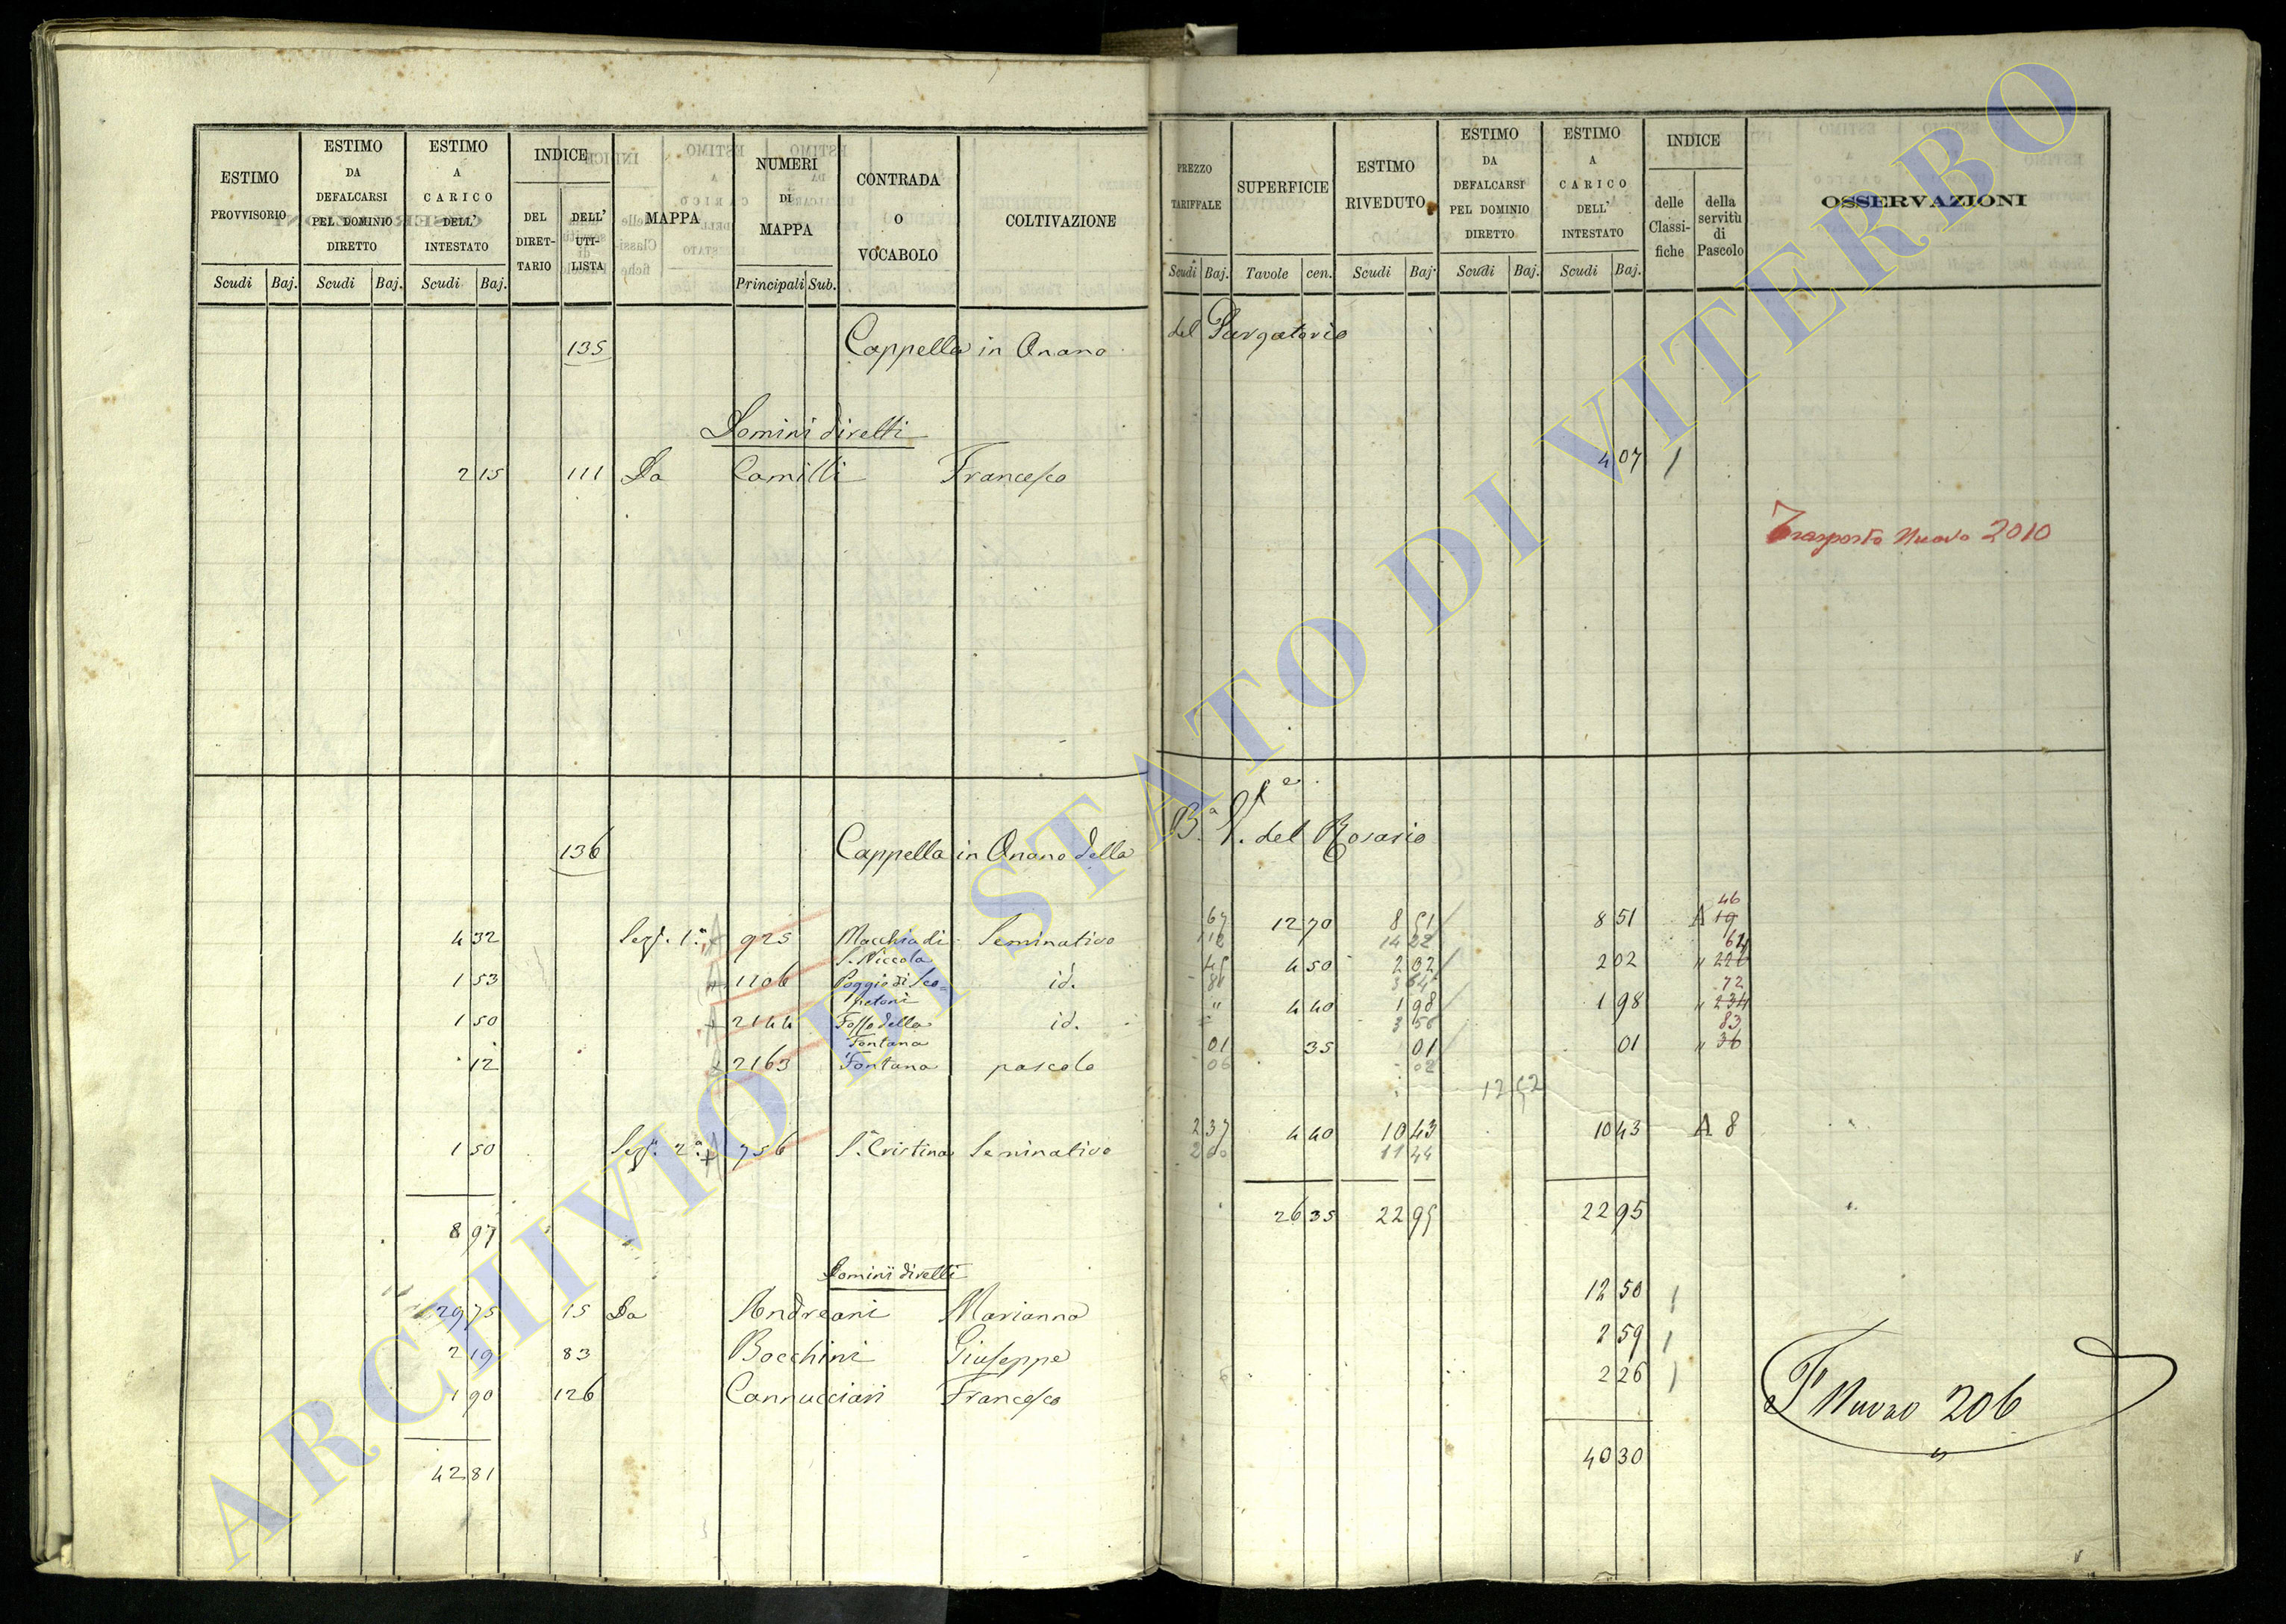 ESTIMO PROVVISORIO
ESTIMO DA DEFALCARSI PEL DOMINIO DIRETTO
ESTIMO A CARICO DELL' INTESTATO
INDICE
DEL DIRET-TARIO
DELL' UTI-LISTA
MAPPA
NUMERI DI MAPPA
CONTRADA O VOCABOLO
COLTIVAZIONE
PREZZO TARIFFALE
SUPERFICIE
ESTIMO RIVEDUTO
ESTIMO DA DEFALCARSI PEL DOMINIO DIRETTO
ESTIMO A CARICO DELL' INTESTATO
INDICE
delle Classi-fiche
della servitù di Pascolo
OSSERVAZIONI
Scudi Baj. Scudi Baj. Scudi Baj. Principali Sub. Scudi Baj. Tavole cen. Scudi Baj. Scudi Baj. Scudi Baj.
135 Cappella in Onano del Purgatorio
Domini diretti
2 15 111 Da Camilli Francesco 4 07
Trasporto Nuovo 2010
136 Cappella in Onano della B.a V. del Rosario
4 32 Sez. 1a A 925 Macchia di S. Niccola Seminativo 67 12 70 8 51 8 51 A 19 46
1 12 14 22
1 53 1106 Poggio di Sco=petoni id. 45 4 50 2 02 2 02 " 226 64
81 3 64
1 50 2144 Fosso della Fontana id. " 4 40 1 98 1 98 " 234 72
3 56
12 2163 Fontana pascolo 01 35 01 01 " 36 83
06 02
12 52
1 50 Sez. 2a A 756 S. Cristina Seminativo 2 37 4 40 10 43 10 43 A 8
2 60 11 44
8 97 26 35 22 95 22 95
Dominii diretti
29 75 15 Da Andreani Marianna 12 50
2 19 83 Bocchini Giuseppe 2 59
1 90 126 Cannucciari Francesco 2 26
42 81 40 30
T Nuovo 206
ARCHIVIO DI STATO DI VITERBO